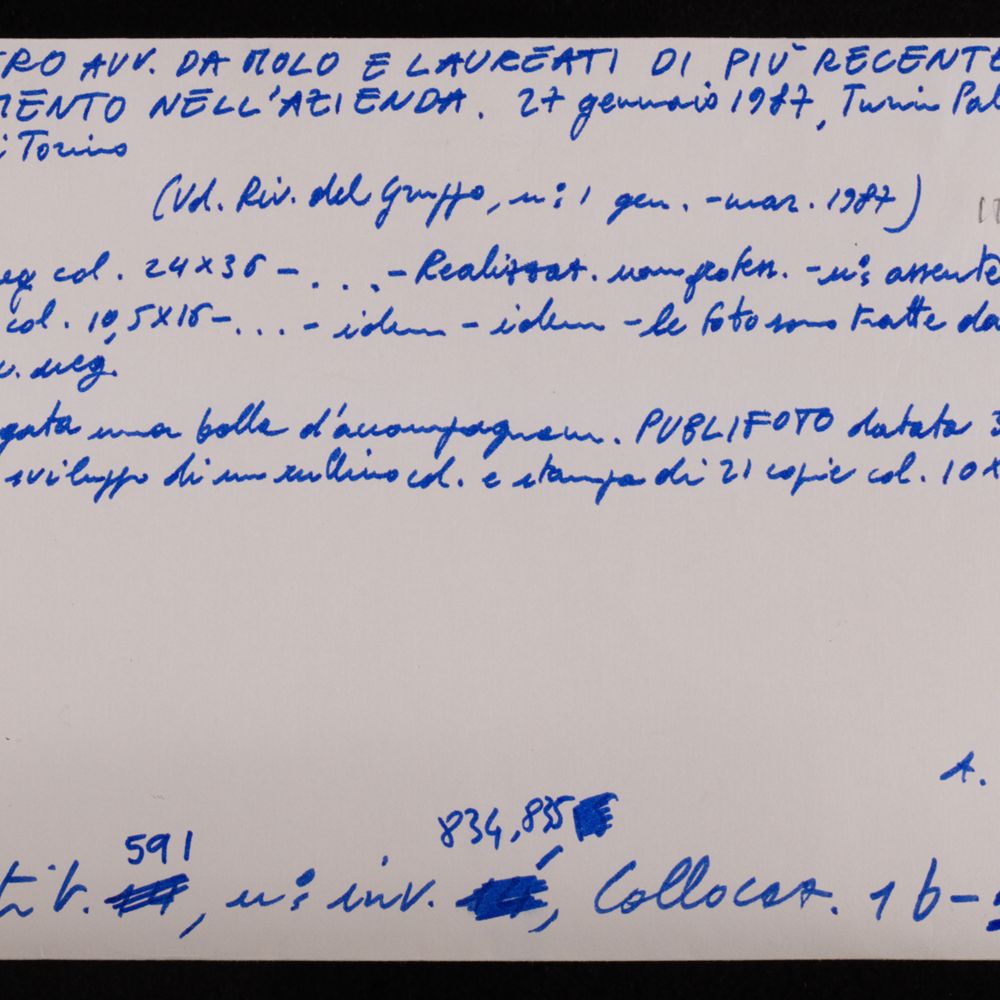 TRO AVV. DA MOLO E LAUREATI DI PIÙ RECENTE
MENTO NELL'AZIENDA. 27 gennaio 1987, Turin Pal
i Torino
(Vd. Riv. del Gruppo, n: 1 gen. - mar. 1987)
eg col. 24x36 - ... - Realizzat. non profess. - n: assente
col. 10,5x15 - ... - idem - idem - le foto sono tratte da
v. neg.
gata una bolla d'accompagnam. PUBLIFOTO datata 3
sviluppo di un rullino col. e stampa di 21 copie col. 10x
A.
591 834, 835
V. , n: inv. , Collocaz. 1 b -